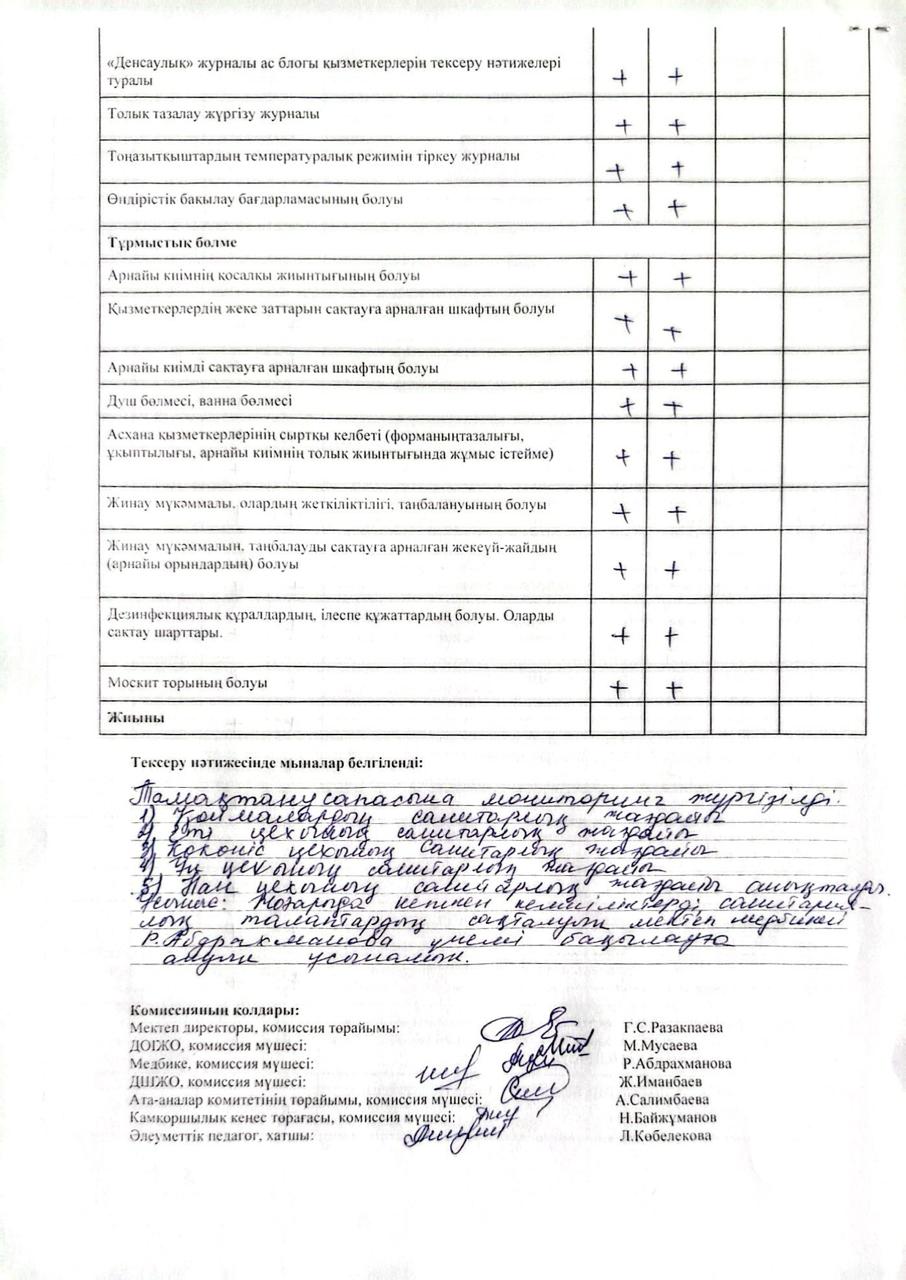 «Денсаулық» журналы ас блогы қызметкерлерін тексеру нәтижелері + +
туралы
Толық тазалау жүргізу журналы + +
Тоңазытқыштардың температуралық режимін тіркеу журналы + +
Өндірістік бақылау бағдарламасының болуы + +
Тұрмыстық бөлме
Арнайы киімнің қосалқы жиынтығының болуы + +
Қызметкерлердің жеке заттарын сақтауға арналған шкафтың болуы + +
Арнайы киімді сақтауға арналған шкафтың болуы + +
Душ бөлмесі, ванна бөлмесі + +
Асхана қызметкерлерінің сыртқы келбеті (форманыңтазалығы,
ұқыптылығы, арнайы киімнің толық жиынтығында жұмыс істейме) + +
Жинау мүкәммалы, олардың жеткіліктілігі, таңбалануының болуы + +
Жинау мүкәммалын, таңбалауды сақтауға арналған жекеүй-жайдың
(арнайы орындардың) болуы + +
Дезинфекциялық құралдардың, ілеспе құжаттардың болуы. Оларды
сақтау шарттары. + +
Москит торының болуы + +
Жиыны
Тексеру нәтижесінде мыналар белгіленді:
Тамақтану сапасына мониторинг жүргізілді.
1) Қоймалардың санитарлық жағдайы
2) Еті цехының санитарлық жағдайы
3) Көкөніс цехының санитарлық жағдайы
4) Ұн цехының санитарлық жағдайы
5) Нан цехының санитарлық жағдайы анықталды.
Ұсыныс: Жоғарыда кемшіліктерді санитария-
лық талаптардың сақталуын мектеп медбикесі
Р.Абдрахманова үнемі бақылауға
алуды ұсынамын.
Комиссияның қолдары:
Мектеп директоры, комиссия төрайымы: Г.С.Разакпаева
ДОІЖО, комиссия мүшесі: М.Мусаева
Медбике, комиссия мүшесі: Р.Абдрахманова
ДШЖО, комиссия мүшесі: Ж.Иманбаев
Ата-аналар комитетінің төрайымы, комиссия мүшесі: А.Салимбаева
Камкоршылық кеңес төрағасы, комиссия мүшесі: Н.Байжұманов
Әлеуметтік педагог, хатшы: Л.Көбелекова